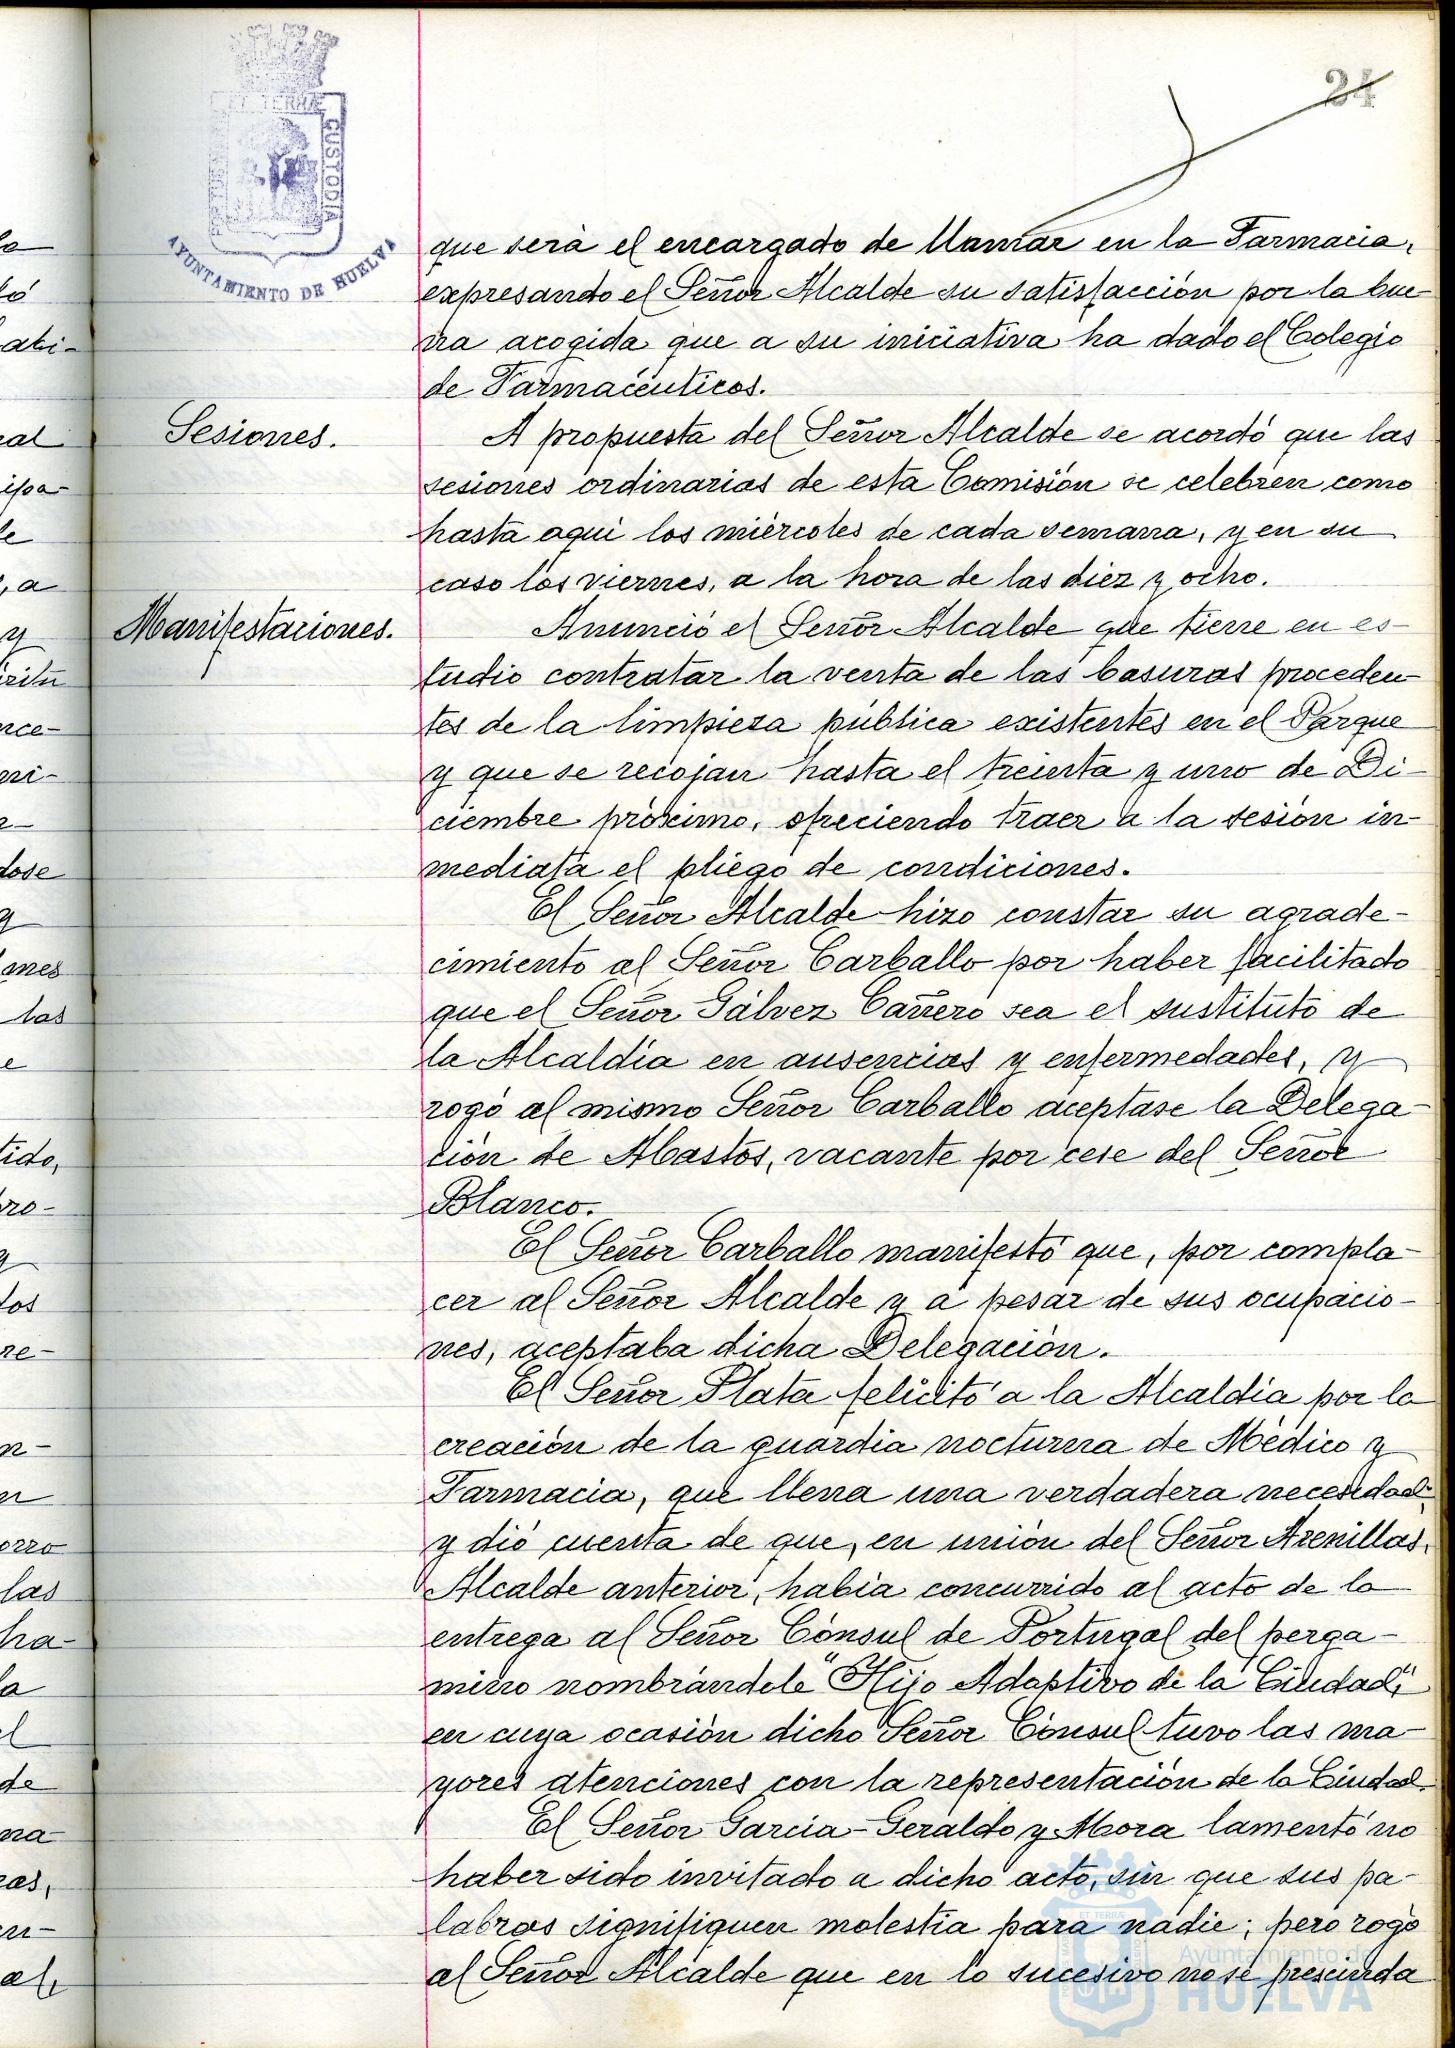 24
ET TERRÆ
CUSTODIA
AYUNTAMIENTO DE HUELVA
que será el encargado de llamar en la Farmacia,
expresando el Señor Alcalde su satisfacción por la bue-
na acogida que a su iniciativa ha dado el Colegio
de Farmacéuticos.
Sesiones.
A propuesta del Señor Alcalde se acordó que las
sesiones ordinarias de esta Comisión se celebren como
hasta aquí los miércoles de cada semana, y en su
caso los viernes, a la hora de las diez y ocho.
Manifestaciones.
Anunció el Señor Alcalde que tiene en es-
tudio contratar la venta de las basuras proceden-
tes de la limpieza pública existentes en el Parque
y que se recojan hasta el treinta y uno de Di-
ciembre próximo, ofreciendo traer a la sesión in-
mediata el pliego de condiciones.
El Señor Alcalde hizo constar su agrade-
cimiento al Señor Carballo por haber facilitado
que el Señor Gálvez Cañero sea el sustituto de
la Alcaldía en ausencias y enfermedades, y
rogó al mismo Señor Carballo aceptase la Delega-
ción de Abastos, vacante por cese del Señor
Blanco.
El Señor Carballo manifestó que, por compla-
cer al Señor Alcalde y a pesar de sus ocupacio-
nes, aceptaba dicha Delegación.
El Señor Plata felicitó a la Alcaldía por la
creación de la guardia nocturna de Médico y
Farmacia, que llena una verdadera necesidad;
y dió cuenta de que, en unión del Señor Arenillas,
Alcalde anterior, había concurrido al acto de la
entrega al Señor Cónsul de Portugal del perga-
mino nombrándole "Hijo Adoptivo de la Ciudad",
en cuya ocasión dicho Señor Cónsul tuvo las ma-
yores atenciones con la representación de la Ciudad.
El Señor García-Geraldo y Mora lamentó no
haber sido invitado a dicho acto, sin que sus pa-
labras signifiquen molestia para nadie; pero rogó
al Señor Alcalde que en lo sucesivo no se prescinda
Ayuntamiento de
HUELVA